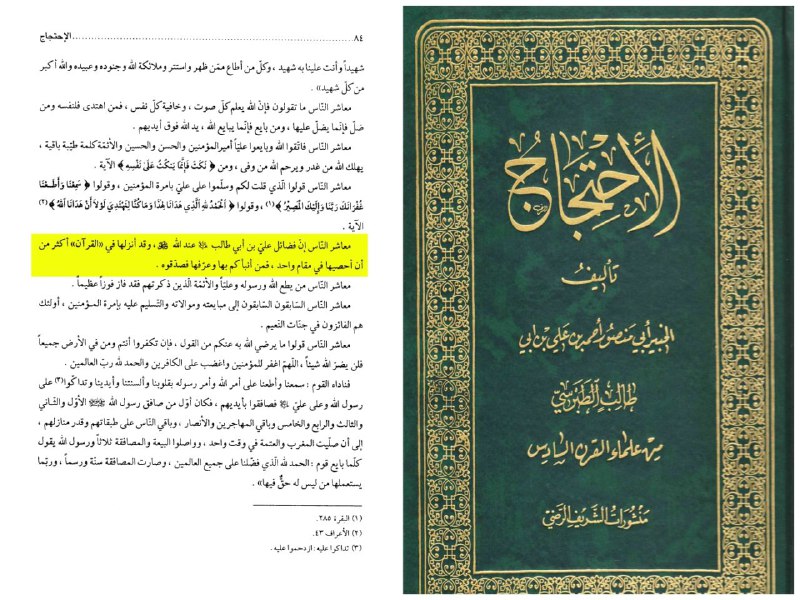 ٨٤ ........ الإحتجاج
شهيداً وأنت علينا به شهيد ، وكلّ من أطاع ممّن ظهر واستتر وملائكة الله وجنوده وعبيده والله أكبر
من كلّ شهيد» .
معاشر النّاس ما تقولون فإنّ الله يعلم كلّ صوت ، وخافية كلّ نفس ، فمن اهتدى فلنفسه ومن
ضلّ فإنّما يضلّ عليها ، ومن بايع فإنّما يبايع الله ، يد الله فوق أيديهم .
معاشر النّاس فاتّقوا الله وبايعوا عليّاً أميرالمؤمنين والحسن والحسين والأئمّة كلمة طيّبة باقية ،
يهلك الله من غدر ويرحم الله من وفى ، ومن ﴿ نَكَثَ فَإِنَّمَا يَنكُثُ عَلَىٰ نَفْسِهِ ﴾ الآية .
معاشر النّاس قولوا الّذي قلت لكم وسلّموا على عليّ بامرة المؤمنين ، وقولوا ﴿ سَمِعْنَا وَأَطَعْنَا
غُفْرَانَكَ رَبَّنَا وَإِلَيْكَ الْمَصِيرُ ﴾(١) ، وقولوا ﴿ الْحَمْدُ للهِ الَّذِي هَدَانَا لِهَذَا وَمَا كُنَّا لِنَهْتَدِيَ لَوْلاَ أَنْ هَدَانَا اللهُ ﴾(٢)
الآية .
معاشر النّاس إنّ فضائل عليّ بن أبي طالب ﷺ عند الله ﷻ ، وقد أنزلها في «القرآن» أكثر من
أن أحصيها في مقام واحد ، فمن أنبأكم بها وعرّفها فصدّقوه .
معاشر النّاس من يطع الله ورسوله وعليّاً والأئمّة الّذين ذكرتهم فقد فاز فوزاً عظيماً .
معاشر النّاس السابقون السّابقون إلى مبايعته وموالاته والتّسليم عليه بإمرة المـؤمنين ، أولئك
هم الفائزون في جنّات النّعيم .
معاشر النّاس قولوا ما يرضي الله به عنكم من القول ، فإن تكفروا أنتم ومن في الأرض جميعاً
فلن يضرّ الله شيئاً ، اللّهمّ اغفر للمؤمنين واغضب على الكافرين والحمد لله ربّ العالمين .
فناداه القوم : سمعنا وأطعنا على أمر الله وأمر رسوله بقلوبنا وألسنتنا وأيدينا وتداكّوا(٣) على
رسول الله وعلى عليّ فصافقوا بأيديهم ، فكان أوّل من صافق رسول الله الأوّل والثّاني
والثالث والرابع والخامس وباقي المهاجرين والأنصار ، وباقي النّاس على طبقاتهم وقدر منازلهم ،
إلى أن صلّيت المغرب والعتمة في وقت واحد ، وواصلوا البيعة والمصافقة ثلاثاً ورسول الله يقول
كلّما بايع قوم : الحمد لله الّذي فضّلنا على جميع العالمين ، وصارت المصافقة سنّة ورسماً ، وربّما
يستعملها من ليس له حقٌّ فيها» .
(١) البقرة ٢٨٥ .
(٢) الأعراف ٤٣ .
(٣) تداكوا عليه : ازدحموا عليه .
الأحتجاج
تأليف
الخبير أبي منصور أحمد بن علي بن أبي
طالب الطبرسي
من علماء القرن السادس
منشورات الشريف الرضي